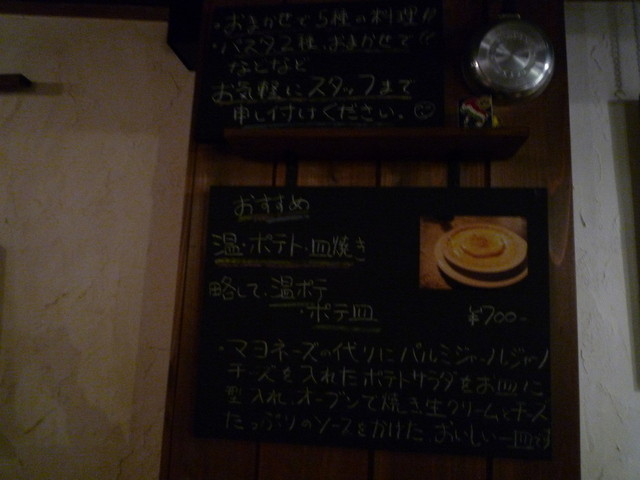 ・おまかせで5種の料理!!
・パスタ2種、おまかせで!!
などなど
お気軽にスタッフまで
申し付けください。
おすすめ
温・ポテト・皿焼き
略して、温ポテ
・ポテ皿
¥700-
・マヨネーズの代りにパルミジャーノレジャーノ
チーズを入れたポテトサラダをお皿に
型入れ、オーブンで焼き生クリームとチーズ
たっぷりのソースをかけた、おいしい一皿です